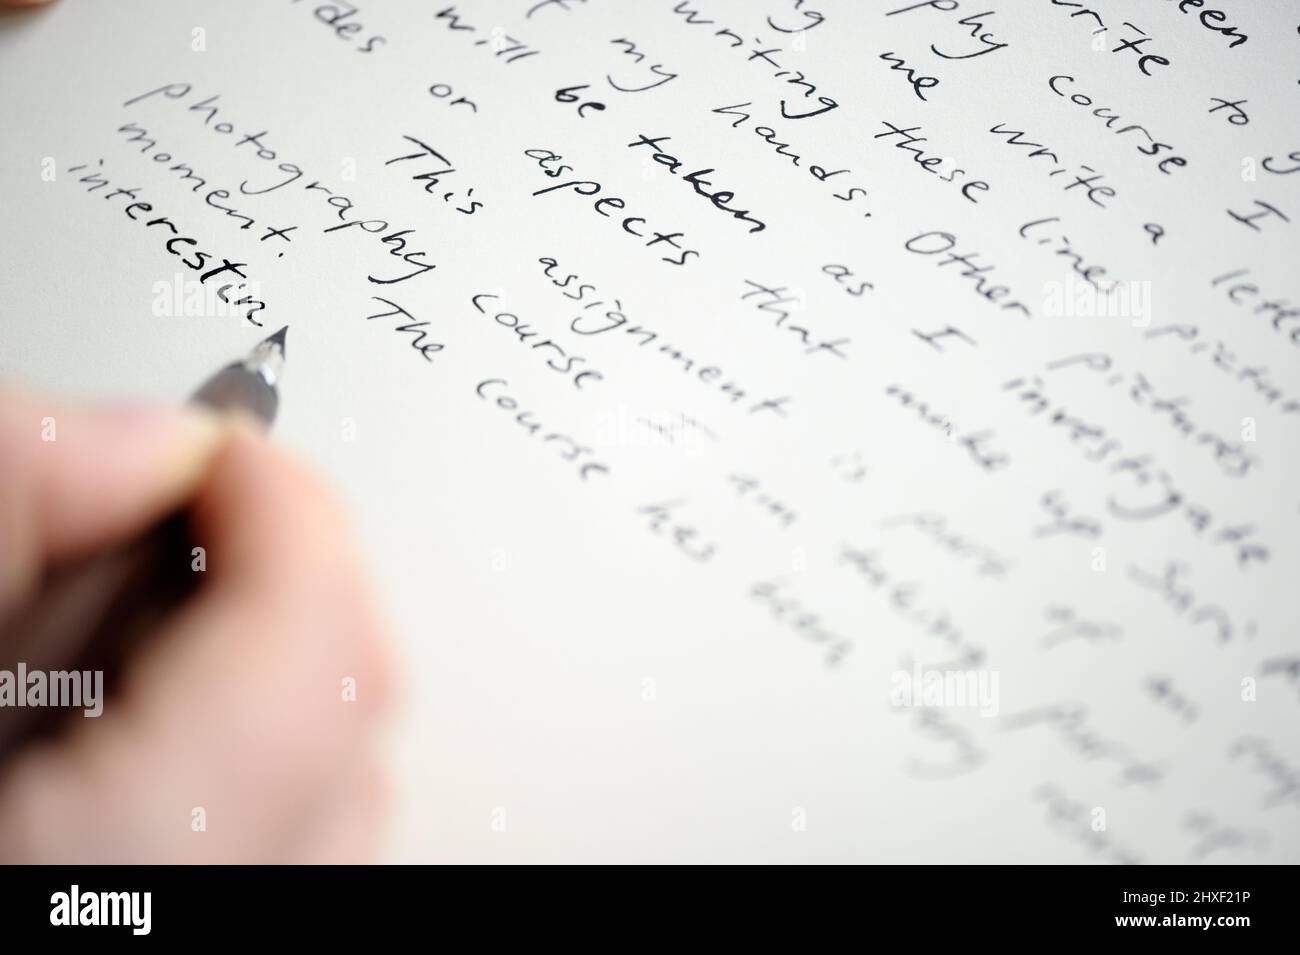 een
write to y
phy course I
ng me write a lette
writing these lines pictur
my hands. Other pictures
will be taken as I investigate
ides or aspects that make up Sari
This assignment is part of an
photography course I am taking part
moment. The course has been very
interestin
alamy
alamy
alamy
alamy
alamy
Image ID: 2HXF21P
www.alamy.com